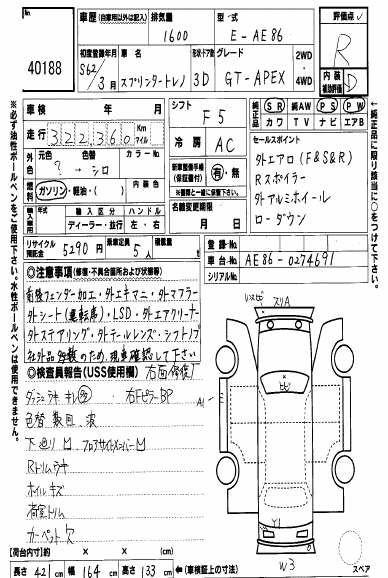 No.
40188
車歴 (自家用以外は記入)
排気量
1600
型式
E-AE86
評価点
R
初度登録年月
S62/3月
車名
スプリンタートレノ
ドア形状
3D
グレード
GT-APEX
2WD
4WD
内装
補助評価
D
車検 年 月
シフト
F5
純正品
SR 純AW PS PW
カワ TV ナビ エアB
走行 322,360 Km
マイル
冷房
AC
セールスポイント
外エアロ(F&S&R)
Rスポイラー
外アルミホイール
ローダウン
外色
元色 色替 カラーNo.
? → シロ
燃料
ガソリン・軽油・( )
内装色
新車整備手帳
(保証書付)
有・無
輸入区分 ハンドル
ディーラー・並行 左・右
名義変更期限
月 日
リサイクル預託金
5290円
乗車定員
5人
積載量
t
登録No.
車台No.
AE86-0274691
シリアルNo.
◎注意事項(修復・不具合箇所および状態等)
前後フェンダー加工・外エキマニ・外マフラー
外シート(運転席)・LSD・外エアクリーナー
外ステアリング・外テールレンズ・シフトノブ
社外品多数のため、現車確認して下さい
◎検査員報告(USS使用欄)
右面修復
色替 数回 波
下廻り M フロアサイドメンバーM
Rトリムキレ
ホイルキズ
荷室トリム
カーペット欠
【荷台内寸】 × × (cm)
長さ 421 cm 幅 164 cm 高さ 133 cm ←(車検証上の寸法)
A1
Y1
W3
スペア
※必ず油性ボールペンをご使用下さい。水性ボールペンは使用できません。
←純正品に限り該当に○をつけて下さい。